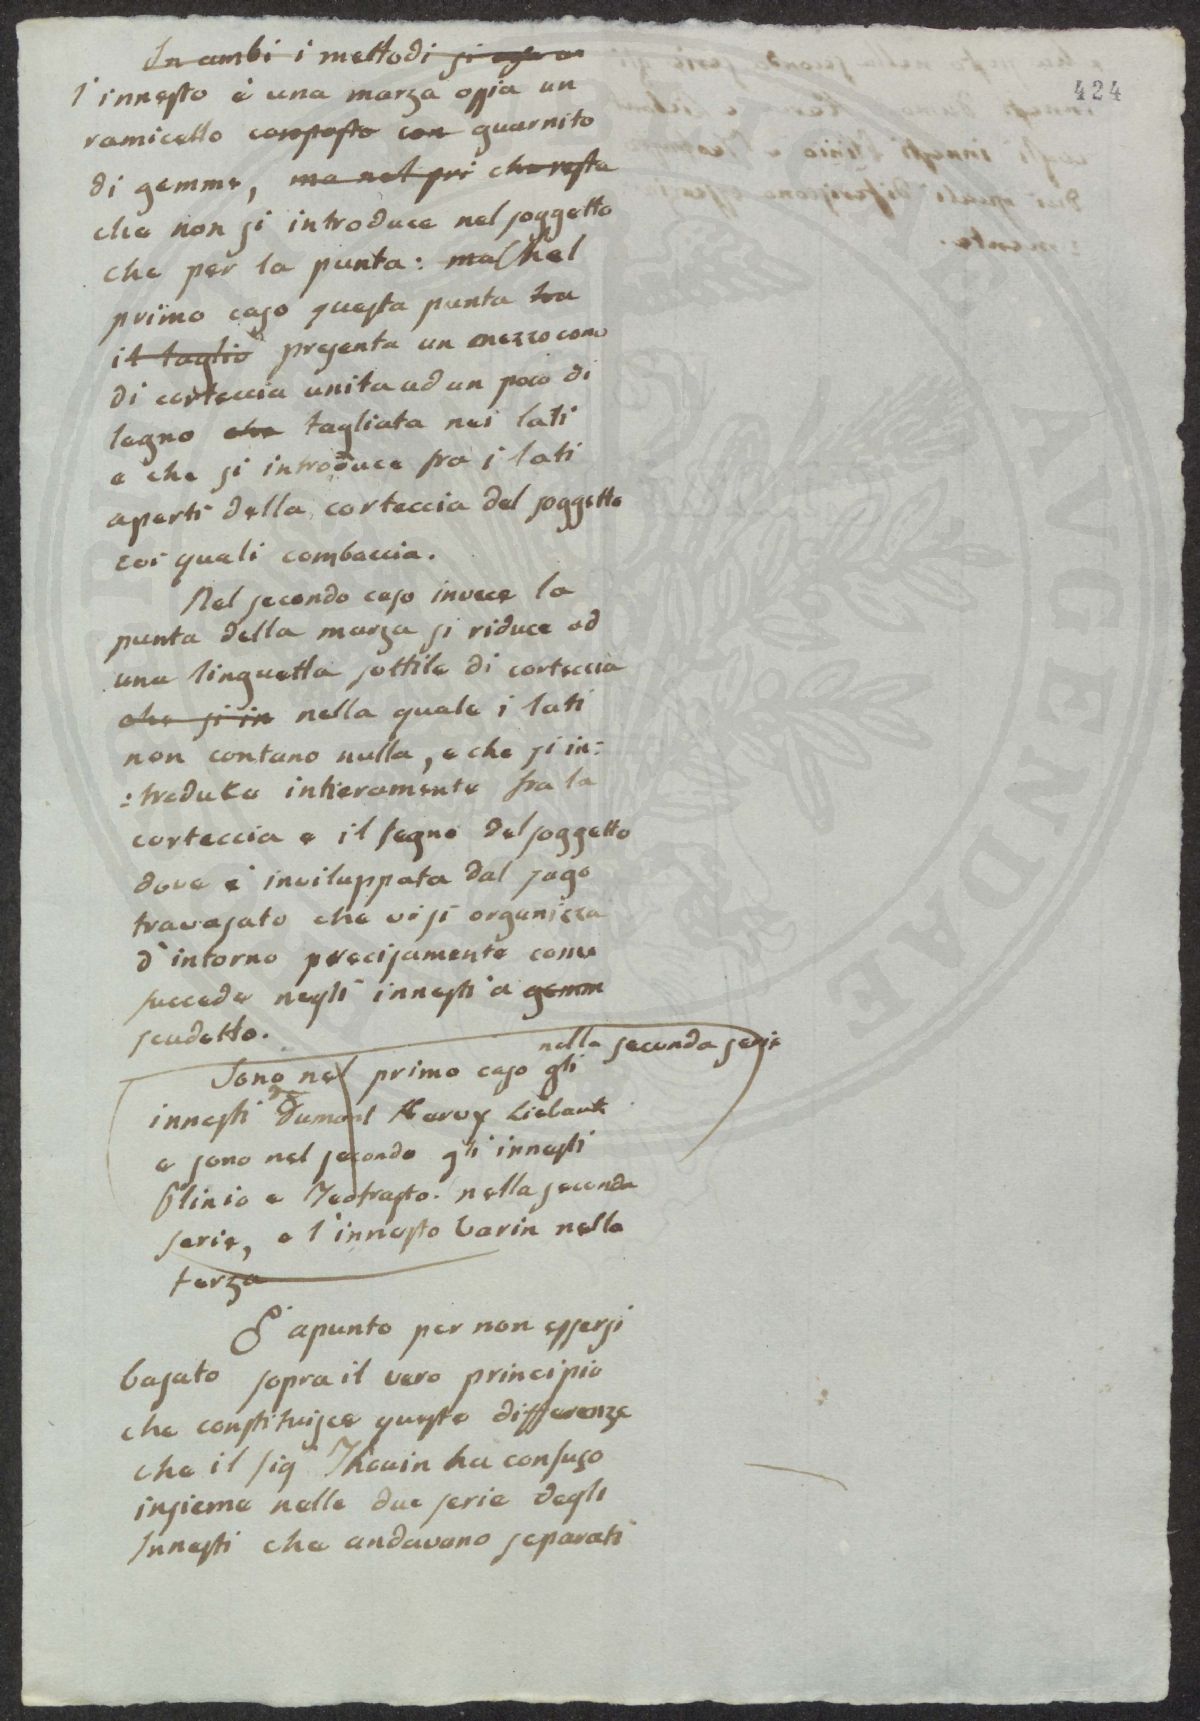 424
In ambi i mettodi si usa un
l'innesto è una marza ossia un
ramicello composto con guarnito
di gemme, ma nel pri che resta
che non si introduce nel soggetto
che per la punta: ma Nel
primo caso questa punta ha
il taglio presenta un mezzo cono
di corteccia unita ad un poco di
legno che tagliata nei lati
e che si introduce fra i lati
aperti della corteccia del soggetto
coi quali combaccia.
Nel secondo caso invece la
punta della marza si riduce ad
una linguetta sottile di corteccia
che si in nella quale i lati
non contano nulla, e che si in:
:troduce intieramente fra la
corteccia e il legno del soggetto
dove è inviluppata dal sugo
travasato che vi si organizza
d'intorno precisamente come
succede negli innesti a gemm
scudetto.
nella seconda serie
Sono nel primo caso gli
innesti Dumont Liebaut
e sono nel secondo gli innesti
Plinio e Teofrasto. nella seconda
serie, e l'innesto Varin nella
terza
È apunto per non essersi
basato sopra il vero principio
che constituisce queste differenze
che il sig Thouin ha confuso
insieme nelle due serie degli
Innesti che andavano separati